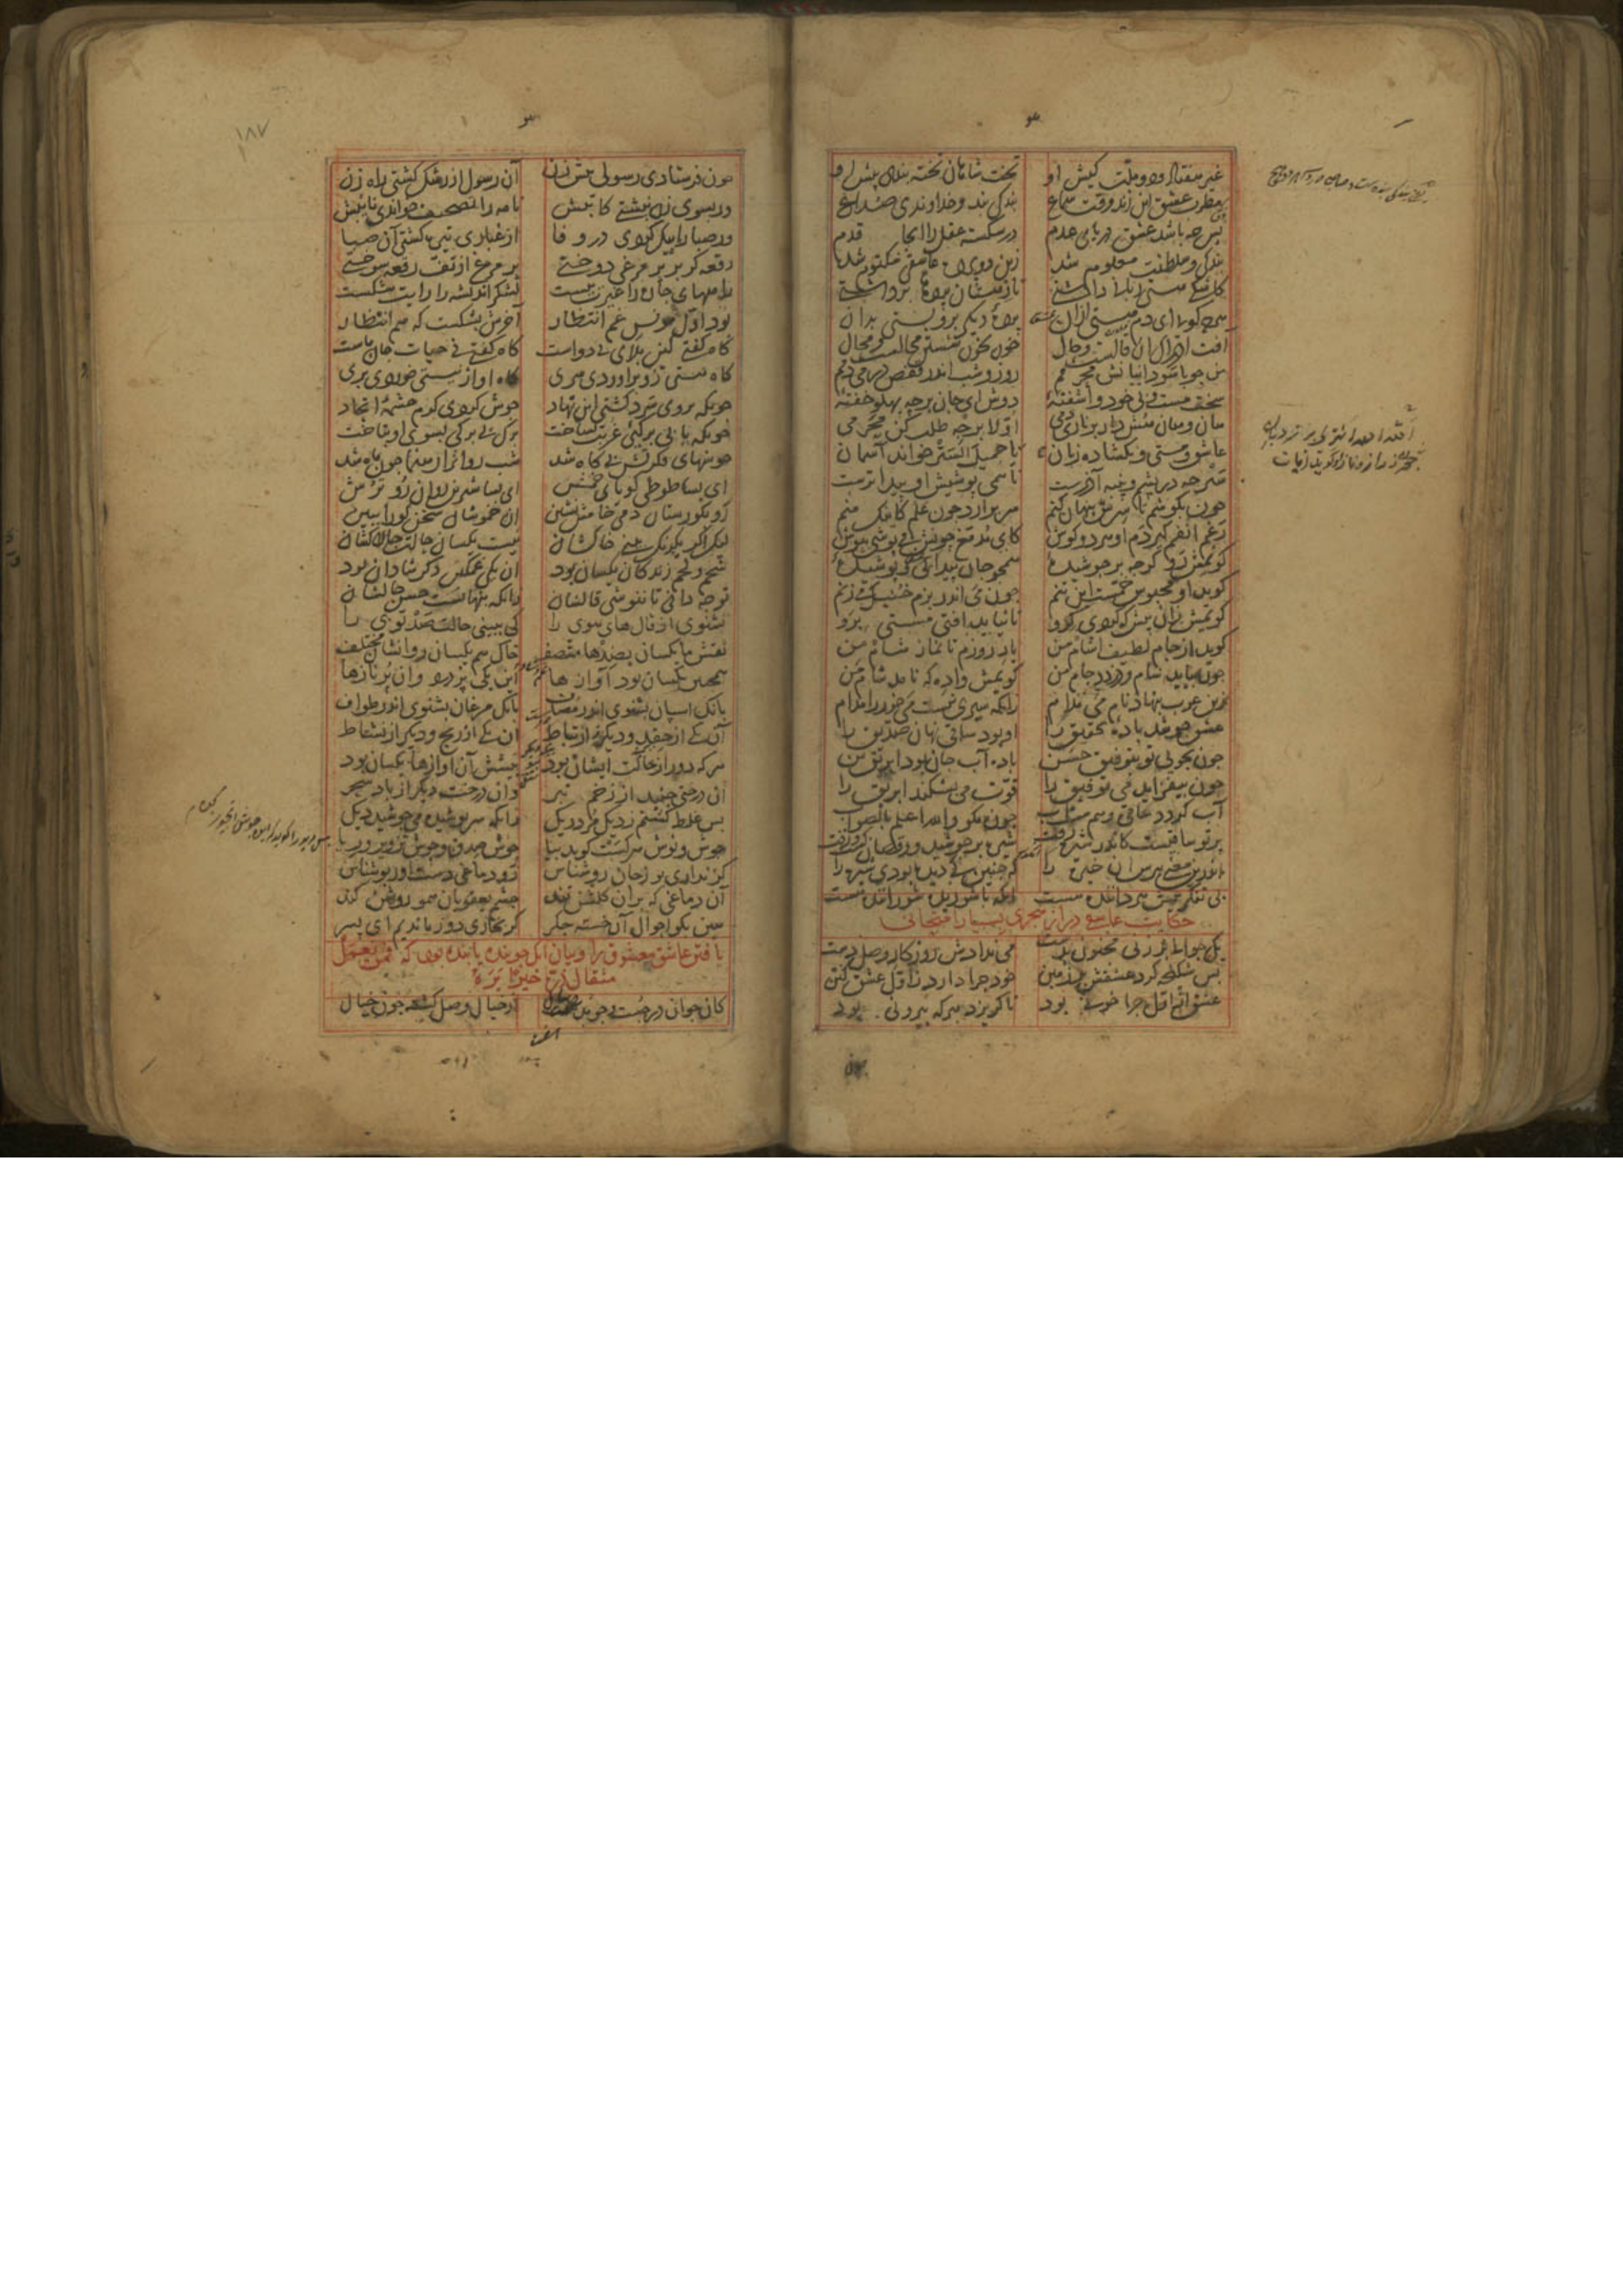 غیر هفتاد و دو ملت کیش او تخت شاهان تخته بندی پیش او
مطرب عشق این زند وقت سماع بندگی بند و خداوندی صداع
پس چه باشد عشق دریای عدم در شکسته عقل را آنجا قدم
بندگی و سلطنت معلوم شد زین دو پرده عاشقی مکتوم شد
کاشکی هستی زبانی داشتی تا ز هستان پردها برداشتی
هرچه گویی ای دم هستی از آن پرده دیگر برو بستی بدان
آفت ادراک آن قالست و حال خون بخون شستن محالست و محال
من چو با سوداییانش محرمم روز و شب اندر قفص در می دمم
سخت مست و بی خود و آشفته دوش ای جان بر چه پهلو خفته
هان و هان هش دار بر ناری دمی اولا برجه طلب کن محرمی
عاشق و مستی و بکشاده زبان الله الله اشتری بر نردبان
چون ز راز و ناز او گوید زبان یا جمیل الستر خواند آسمان
ستر چه در پشم و پنبه آذرست تا همی پوشیش او پیداترست
چون بکوشم تا سرش پنهان کنم سر برآرد چون علم کاینک منم
رغم انفم گیردم او هر دو گوش کای مدمغ چونش می پوشی بپوش
گویمش رو گرچه بر جوشیده همچو جان پیدایی و پوشیده
گوید او محبوس خنبست این تنم چون می اندر بزم خنبک می زنم
گویمش زان پیش که گردی گرو تا نیاید آفت مستی برو
گوید از جام لطیف آشام من یار روزم تا نماز شام من
چون بیاید شام و دزدد جام من گویمش واده که نامد شام من
زین عرب بنهاد نام می مدام زانکه سیری نیست می خور را مدام
عشق جوشد باده تحقیق را او بود ساقی نهان صدیق را
چون بجویی تو بتوفیق حسن باده آب جان بود ابریق تن
چون بیفزاید می توفیق را قوت می بشکند ابریق را
آب گردد ساقی و هم مست آب چون مگو والله اعلم بالصواب
پرتو ساقیست کاندر شیره رفت شیره بر جوشید و رقصان گشت و زفت
اندرین معنی بپرس آن خیره را که چنین کی دیده بودی شیره را
بی تفکر پیش هر داننده هست آنکه با شوریده شوراننده هست
حکایت عاشق دراز هجری بسیار امتحانی
یک جوانی بر زنی مجنون بدست می ندادش روزگار وصل دست
بس شکنجه کرد عشقش بر زمین خود چرا دارد ز اول عشق کین
عشق از اول چرا خونی بود تا گریزد هرکه بیرونی بود
چون
چون فرستادی رسولی پیش زن آن رسول از رشک گشتی راه زن
ور بسوی زن نبشتی کاتبش نامه را تصحیف خواندی نایبش
ور صبا را پیک کردی در وفا از غباری تیره گشتی آن صبا
رقعه گر بر پر مرغی دوختی پر مرغ از تف رقعه سوختی
راههای چاره را غیرت ببست لشکر اندیشه را رایت شکست
بود اول مونس غم انتظار آخرش بشکست که هم انتظار
گاه گفتی کین بلای بی دواست گاه گفتی نی حیات جان ماست
گاه هستی زو برآوردی سری گاه او از نیستی خوردی بری
چونکه بر وی سرد گشتی این نهاد جوش کردی گرم چشمه اتحاد
چونکه با بی برگی غربت بساخت برگ بی برگی بسوی او بتاخت
خوشهای فکرتش بی کاه شد شب روان را رهنما چون ماه شد
ای بسا طوطی گویای خمش ای بسا شیرین روان رو ترش
رو بگورستان دمی خامش نشین آن خموشان سخن گو را ببین
لیک اگر یکرنگ بینی خاکشان نیست یکسان حالت چالاکشان
شحم و لحم زندگان یکسان بود آن یکی غمگین دگر شادان بود
تو چه دانی تا ننوشی قالشان زانکه پنهانست حسن حالشان
بشنوی از قال های هوی را کی ببینی حالت صد توی را
نقش ما یکسان بضدها متصف خاک هم یکسان روانشان مختلف
همچنین یکسان بود آوازها آن یکی پر درد و آن پر نازها
بانگ اسپان بشنوی اندر مصاف بانگ مرغان بشنوی اندر طواف
آن یکی از حقد و دیگر ز ارتباط آن یکی از رنج و دیگر از نشاط
هرکه دور از حالت ایشان بود پیشش آن آوازها یکسان بود
آن درختی جنبد از زخم تبر وان درخت دیگر از باد سحر
بس غلط گشتم ز دیگ مرده ریگ زانکه سرپوشیده می جوشید دیگ
جوش و نوش هرکست گوید بیا جوش صدق و جوش تزویر و ریا
گر نداری بو ز جان روشناس رو دماغی دست آور بوشناس
آن دماغی که بران گلشن تند چشم یعقوبان همو روشن کند
هین بگو احوال آن خسته جگر کز بخاری دور ماندیم ای پسر
یافتن عاشق معشوق را و بیان آنکه جوینده یابنده بود که فمن یعمل
مثقال ذرة خیرا یره
کان جوان در جست و جو بد هفت سال از خیال وصل گشته چون خیال
۱۸۷